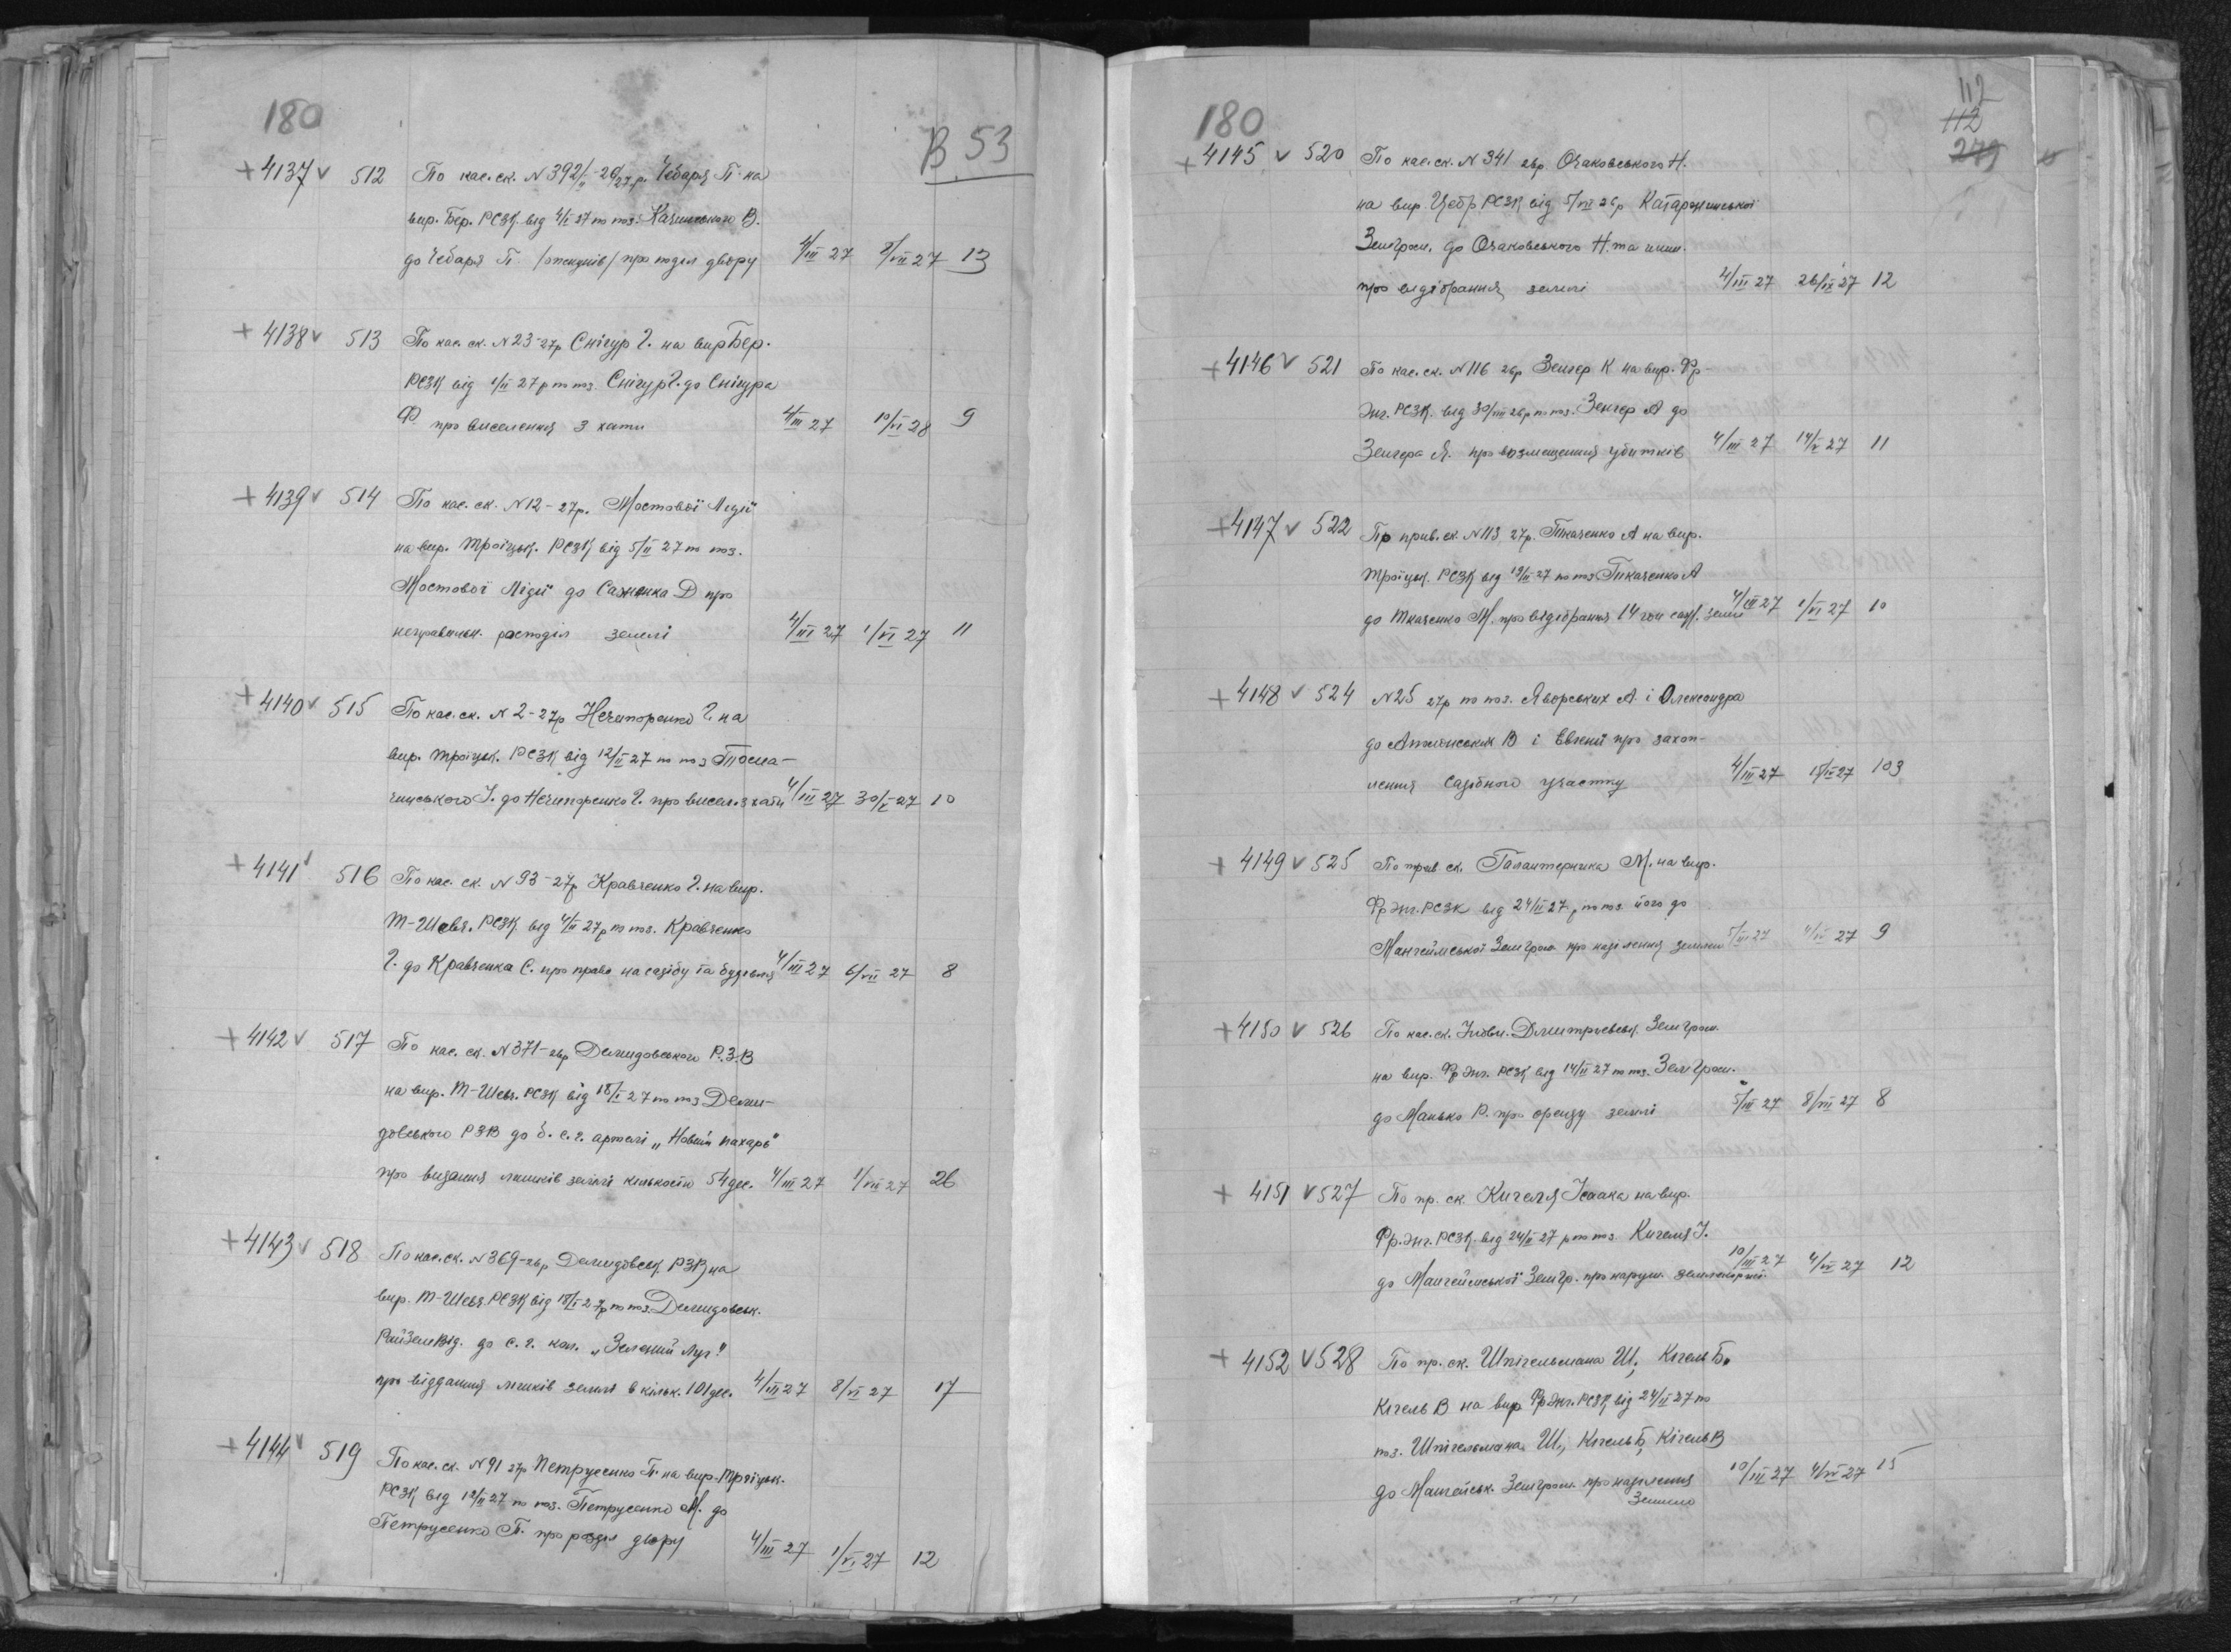 180
В 53
+ 4137 v 512 По кас. ск. N 392/II-26/27 р. Чебаря П на
вир. Бер. РСЗК від 4/I 27 по поз. Качинського В.
до Чебаря П. про поділ двору 4/III 27 8/VII 27 13
+ 4138 v 513 По кас. ск. N 23-27р Снігур Г. на вир Бер.
РСЗК від 1/II 27 р по поз. Снігур Г. до Снігура
Ф. про виселення з хати 4/III 27 10/VI 28 9
+ 4139 v 514 По кас. ск. N 12-27р. Мостової Лідії
на вир. Троїцьк. РСЗК від 5/II 27 по поз.
Мостової Лідії до Саженка Д про
неправильн. розподіл землі 4/III 27 1/VI 27 11
+ 4140 v 515 По кас. ск. N 2-27р Нечипоренко Г. на
вир. Троїцьк. РСЗК від 12/II 27 по поз
до Нечипоренко Г. про висел. з хати 4/III 27 30/V 27 10
+ 4141 v 516 По кас. ск. N 93-27р Кравченко Г. на вир.
Т-Шевч. РСЗК від 4/II 27р по поз. Кравченко
Г. до Кравченка С. про право на садібу та будівлі 4/III 27 6/VII 27 8
+ 4142 v 517 По кас. ск. N 371-26р Демидовського Р.З.В
на вир. Т-Шевч. РСЗК від 18/I 27 по поз Деми-
довського РЗВ до б. с. г. артелі „Новий пахарь"
про видання лишків землі кількости 54 дес. 4/III 27 1/VII 27 26
+ 4143 v 518 По кас. ск. N 369-26р Демидовськ РЗВ на
вир. Т-Шевч. РСЗК від 18/I 27р по поз. Демидовськ.
РайЗемВід. до с. г. кол. „Зелений Луг"
про віддання лишків землі в кільк. 101 дес. 4/III 27 8/VI 27 17
+ 4144 v 519 По кас. ск. N 91 27р Петрусенко П. на вир. Троїцьк.
РСЗК від 12/II 27 по поз. Петрусенко М. до
Петрусенко П. про розділ двору 4/III 27 1/VI 27 12
180
112
112
279
+ 4145 v 520 По кас. ск. N 341 26р Очаковського Н.
на вир. Цебр. РСЗК від 5/VIII 26р Катаржинської
ЗемГром. до Очаковського Н. та инш.
про відібрання землі 4/III 27 26/IX 27 12
+ 4146 v 521 По кас. ск. N 116 26р Зенгер К на вир. Фр-
Энг. РСЗК. від 30/VIII 26р по поз. Зенгер А до
Зенгера Я. про возмещення убитків 4/III 27 14/V 27 11
+ 4147 v 522 По прив. ск. N 113 27р. Ткаченко А на вир.
Троїцьк. РСЗК від 19/II 27 по поз Ткаченко А
до Ткаченко М. про відібрання 14 саж. землі 4/III 27 1/VI 27 10
+ 4148 v 524 N 25 27р по поз. Яворських А. і Олександра
до В і Евгенії про захоп-
лення садібного участку 4/III 27 15/IX 27 103
+ 4149 v 525 По прив ск. Галантерника М. на вир.
Фр Энг. РСЗК від 24/II 27 р по поз. його до
Мангеймської ЗемГром про наділення землею 5/III 27 4/IV 27 9
+ 4150 v 526 По кас. ск. Дмитриевськ. ЗемГром.
на вир. Фр Энг. РСЗК від 14/II 27 по поз. ЗемГром.
до Манько Р. про оренду землі 5/III 27 8/VII 27 8
+ 4151 v 527 По пр. ск. Кигеля Ісаака на вир.
Фр. Энг. РСЗК. від 24/II 27 р по поз. Кигеля І.
до Мангеймської ЗемГр. про наруш. 10/III 27 4/VI 27 12
+ 4152 v 528 По пр. ск. Шпігельмана Ш., Кігель Б.
Кігель В на вир Фр Энг. РСЗК від 24/II 27 по
поз. Шпігельмана Ш., Кігель Б, Кігель В
до Мангейськ. ЗемГром. про наділення 10/III 27 4/IV 27 15
Землею